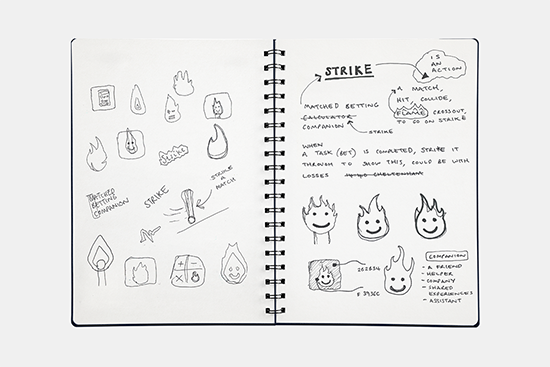 MATCHED
BETTING
COMPANION
STRIKE
STRIKE
A
MATCH
STRIKE
IS
AN
ACTION
A MATCH,
HIT, COLLIDE,
FLAME CROSSOUT,
TO GO ON STRIKE
MATCHED BETTING
CALCULATOR
COMPANION
STRIKE
WHEN
A TASK (BET) IS COMPLETED, STRIKE IT
THROUGH TO SHOW THIS, COULD BE WITH
LOSSES
202834
COMPANION
- A FRIEND
- HELPER
- COMPANY
- SHARED
EXPERIENCES
- ASSISTANT